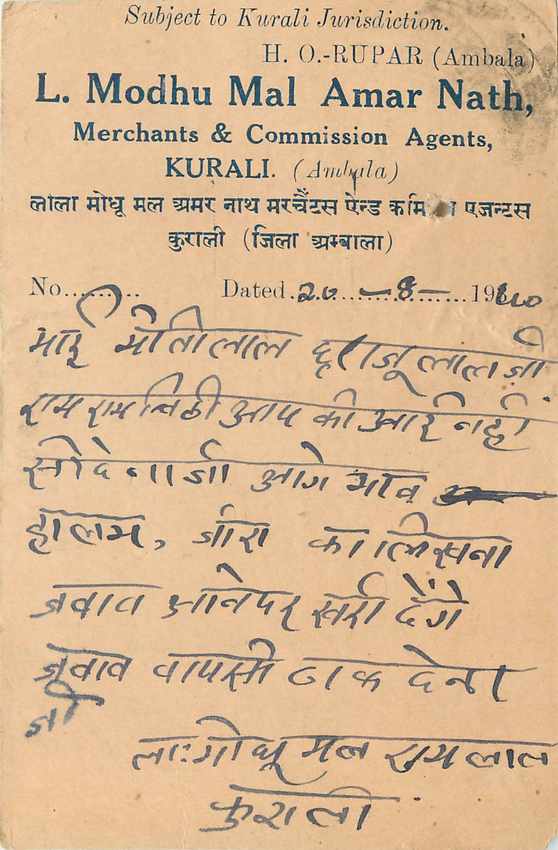 Subject to Kurali Jurisdiction.
H. O.-RUPAR (Ambala)
L. Modhu Mal Amar Nath,
Merchants & Commission Agents,
KURALI. (Ambala)
लाला मोधू मल अमर नाथ मरचैंटस ऐन्ड कमि एजन्टस
कुराली (जिला अम्बाला)
No.......... Dated 20-8-19
भाई मोतीलाल जी
राम राम चिठी आप की आई नही
सो देना जी आगे भाव
हालम, जीरा का लिखना
जबाव आनेपर खरीदेंगे
जवाव वापसी डाक देना
जी
लाः मोधू मल
कुराली